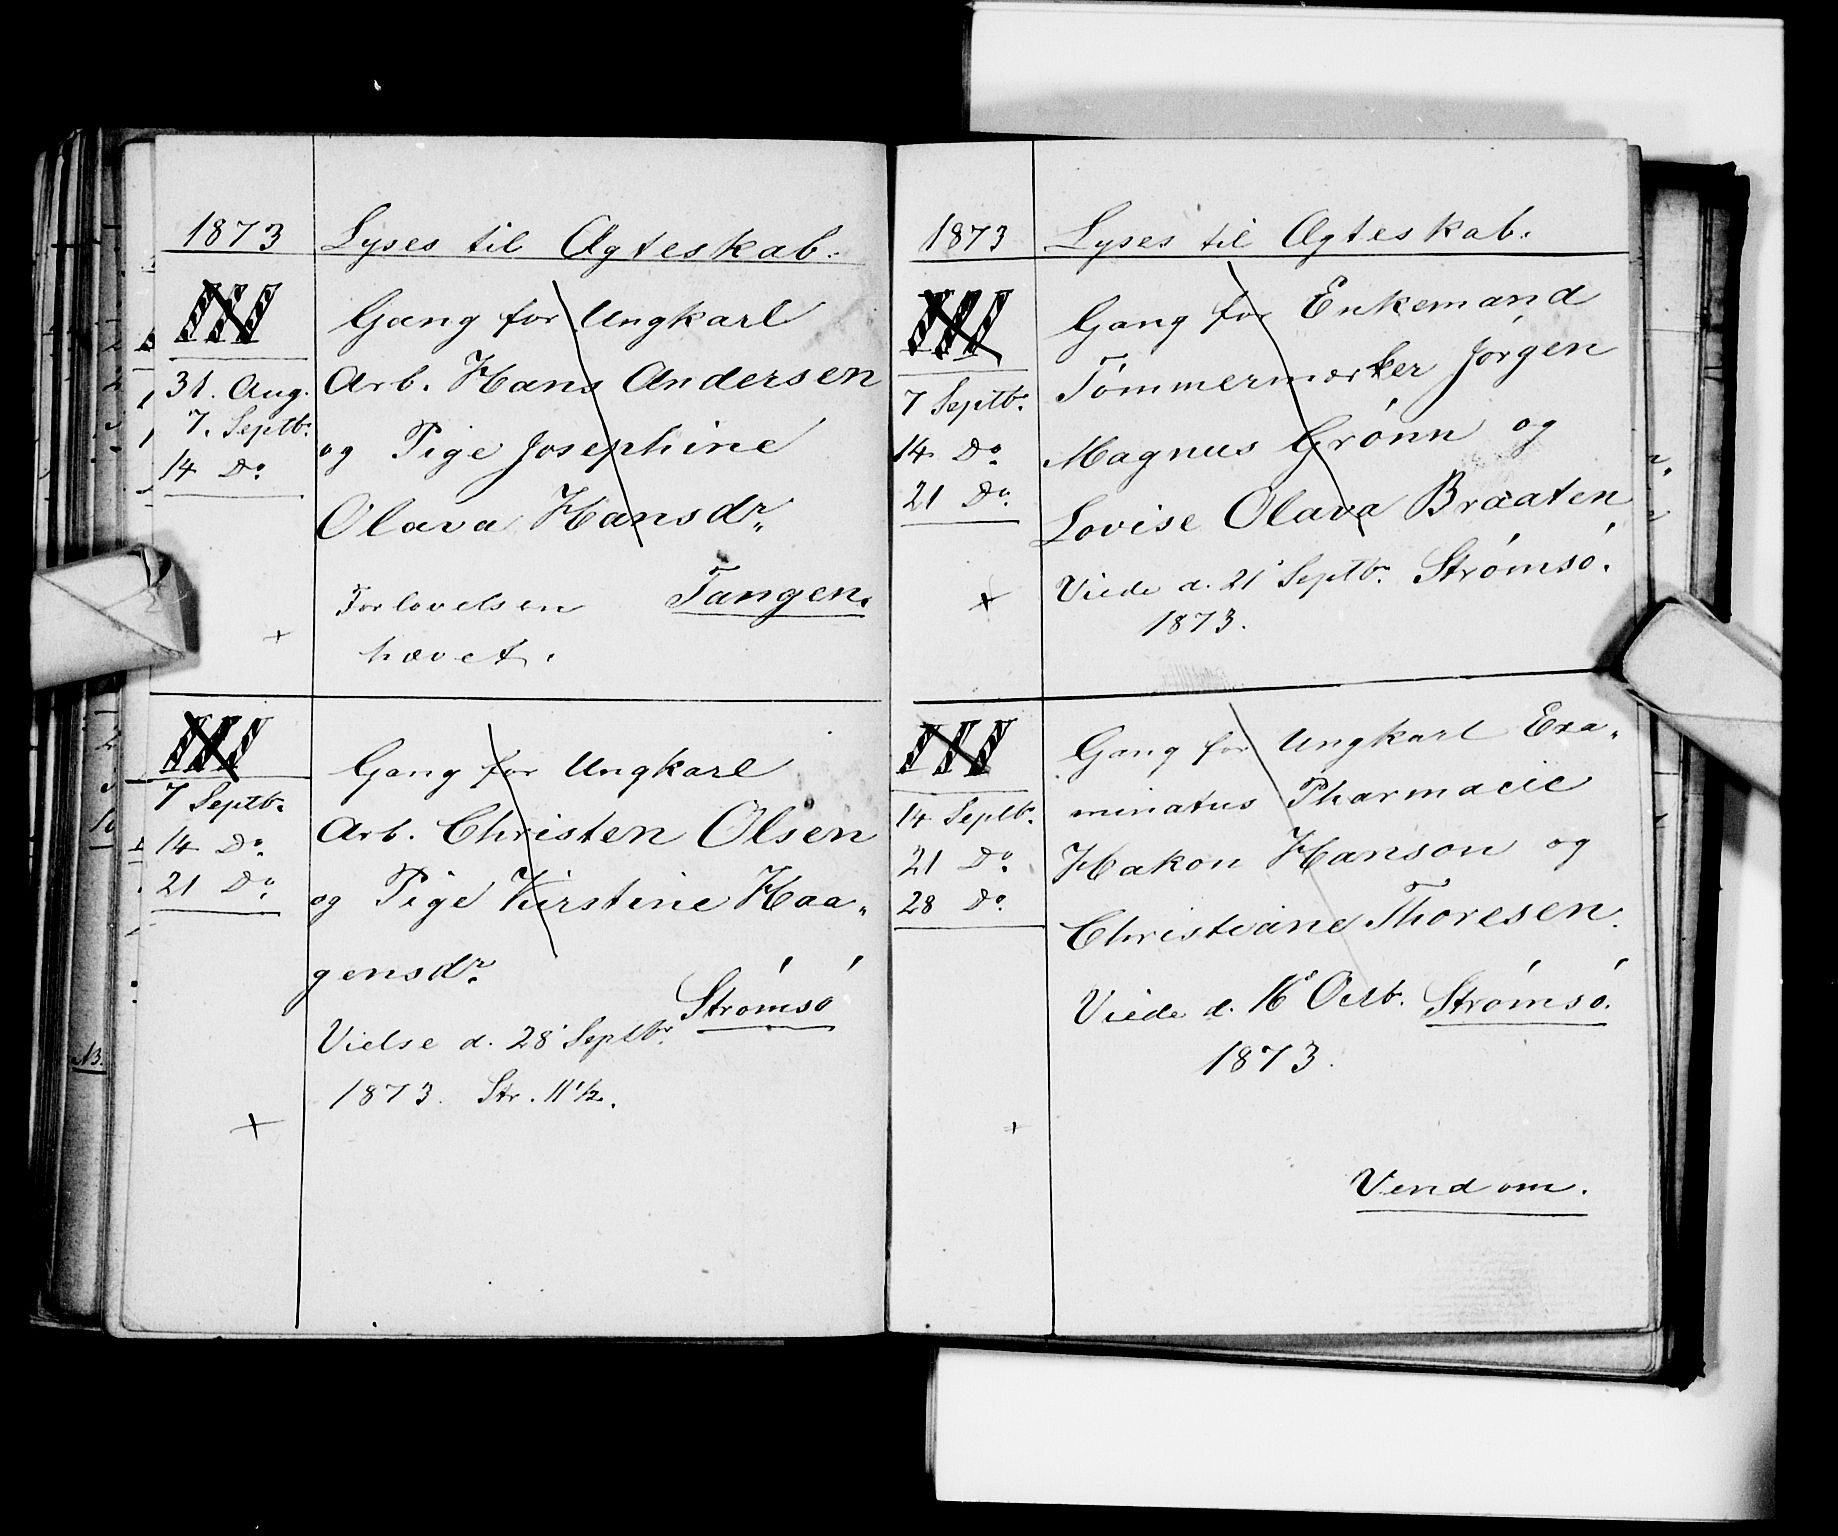 1873 Lyses til Ægteskab.
III Gang for Ungkarl
31. Aug. Arb. Hans Andersen
7. Septbr. og Pige Josephine
14 Do. Olava Hansdr.
Forlovelsen Tangen.
hævet.
III Gang for Ungkarl
7 Septbr. Arb. Christen Olsen
14 Do. og Pige Kirstine Haa„
21 Do. gensdr.
Strømsø
Vielse d. 28 Septbr.
1873. Str. 11½.
1873 Lyses til Ægteskab.
III Gang for Enkemand
7 Septbr. Tømmermærker Jørgen
14 Do. Magnus Grønn og
21 Do. Lovise Olava Braaten
Viede d. 21 Septbr. Strømsø.
1873.
III Gang for Ungkarl Exa„
14 Septbr. minatus Pharmacie
21 Do. Hakon Hanson og
28 Do. Christiane Thoresen.
Viede d. 16 Octb. Strømsø.
1873.
Vend om.
NB.